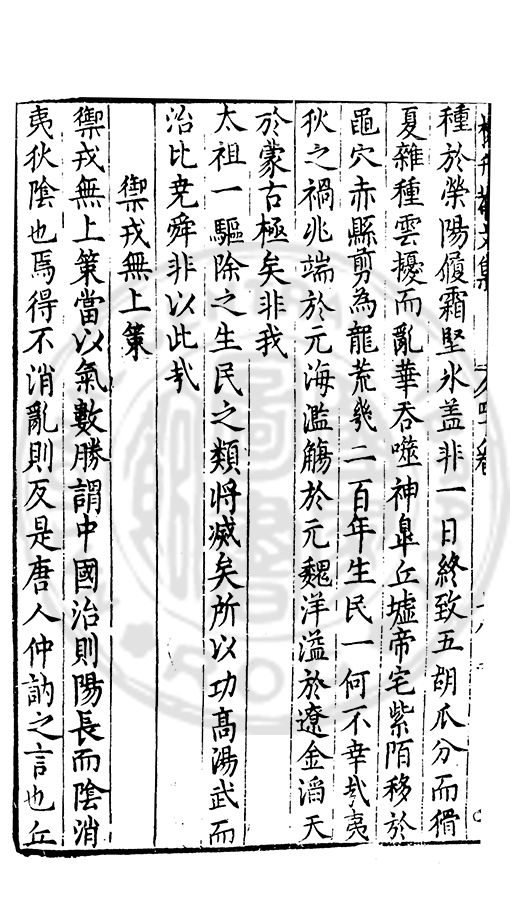 種於榮陽履霜堅氷盖非一日終致五胡瓜分而猾
夏雜種雲擾而亂華吞噬神臯丘墟帝宅紫陌移於
黽穴赤縣剪為龍荒幾二百年生民一何不幸㢤夷
狄之禍兆端於元海濫觴於元魏洋溢於遼金滔天
於蒙古極矣非我
太祖一驅除之生民之類將滅矣所以功髙湯武而
治比尭舜非以此㢤
禦戎無上策
禦戎無上策當以氣數勝謂中國治則陽長而陰消
夷狄陰也焉得不消亂則反是唐人仲訥之言也丘